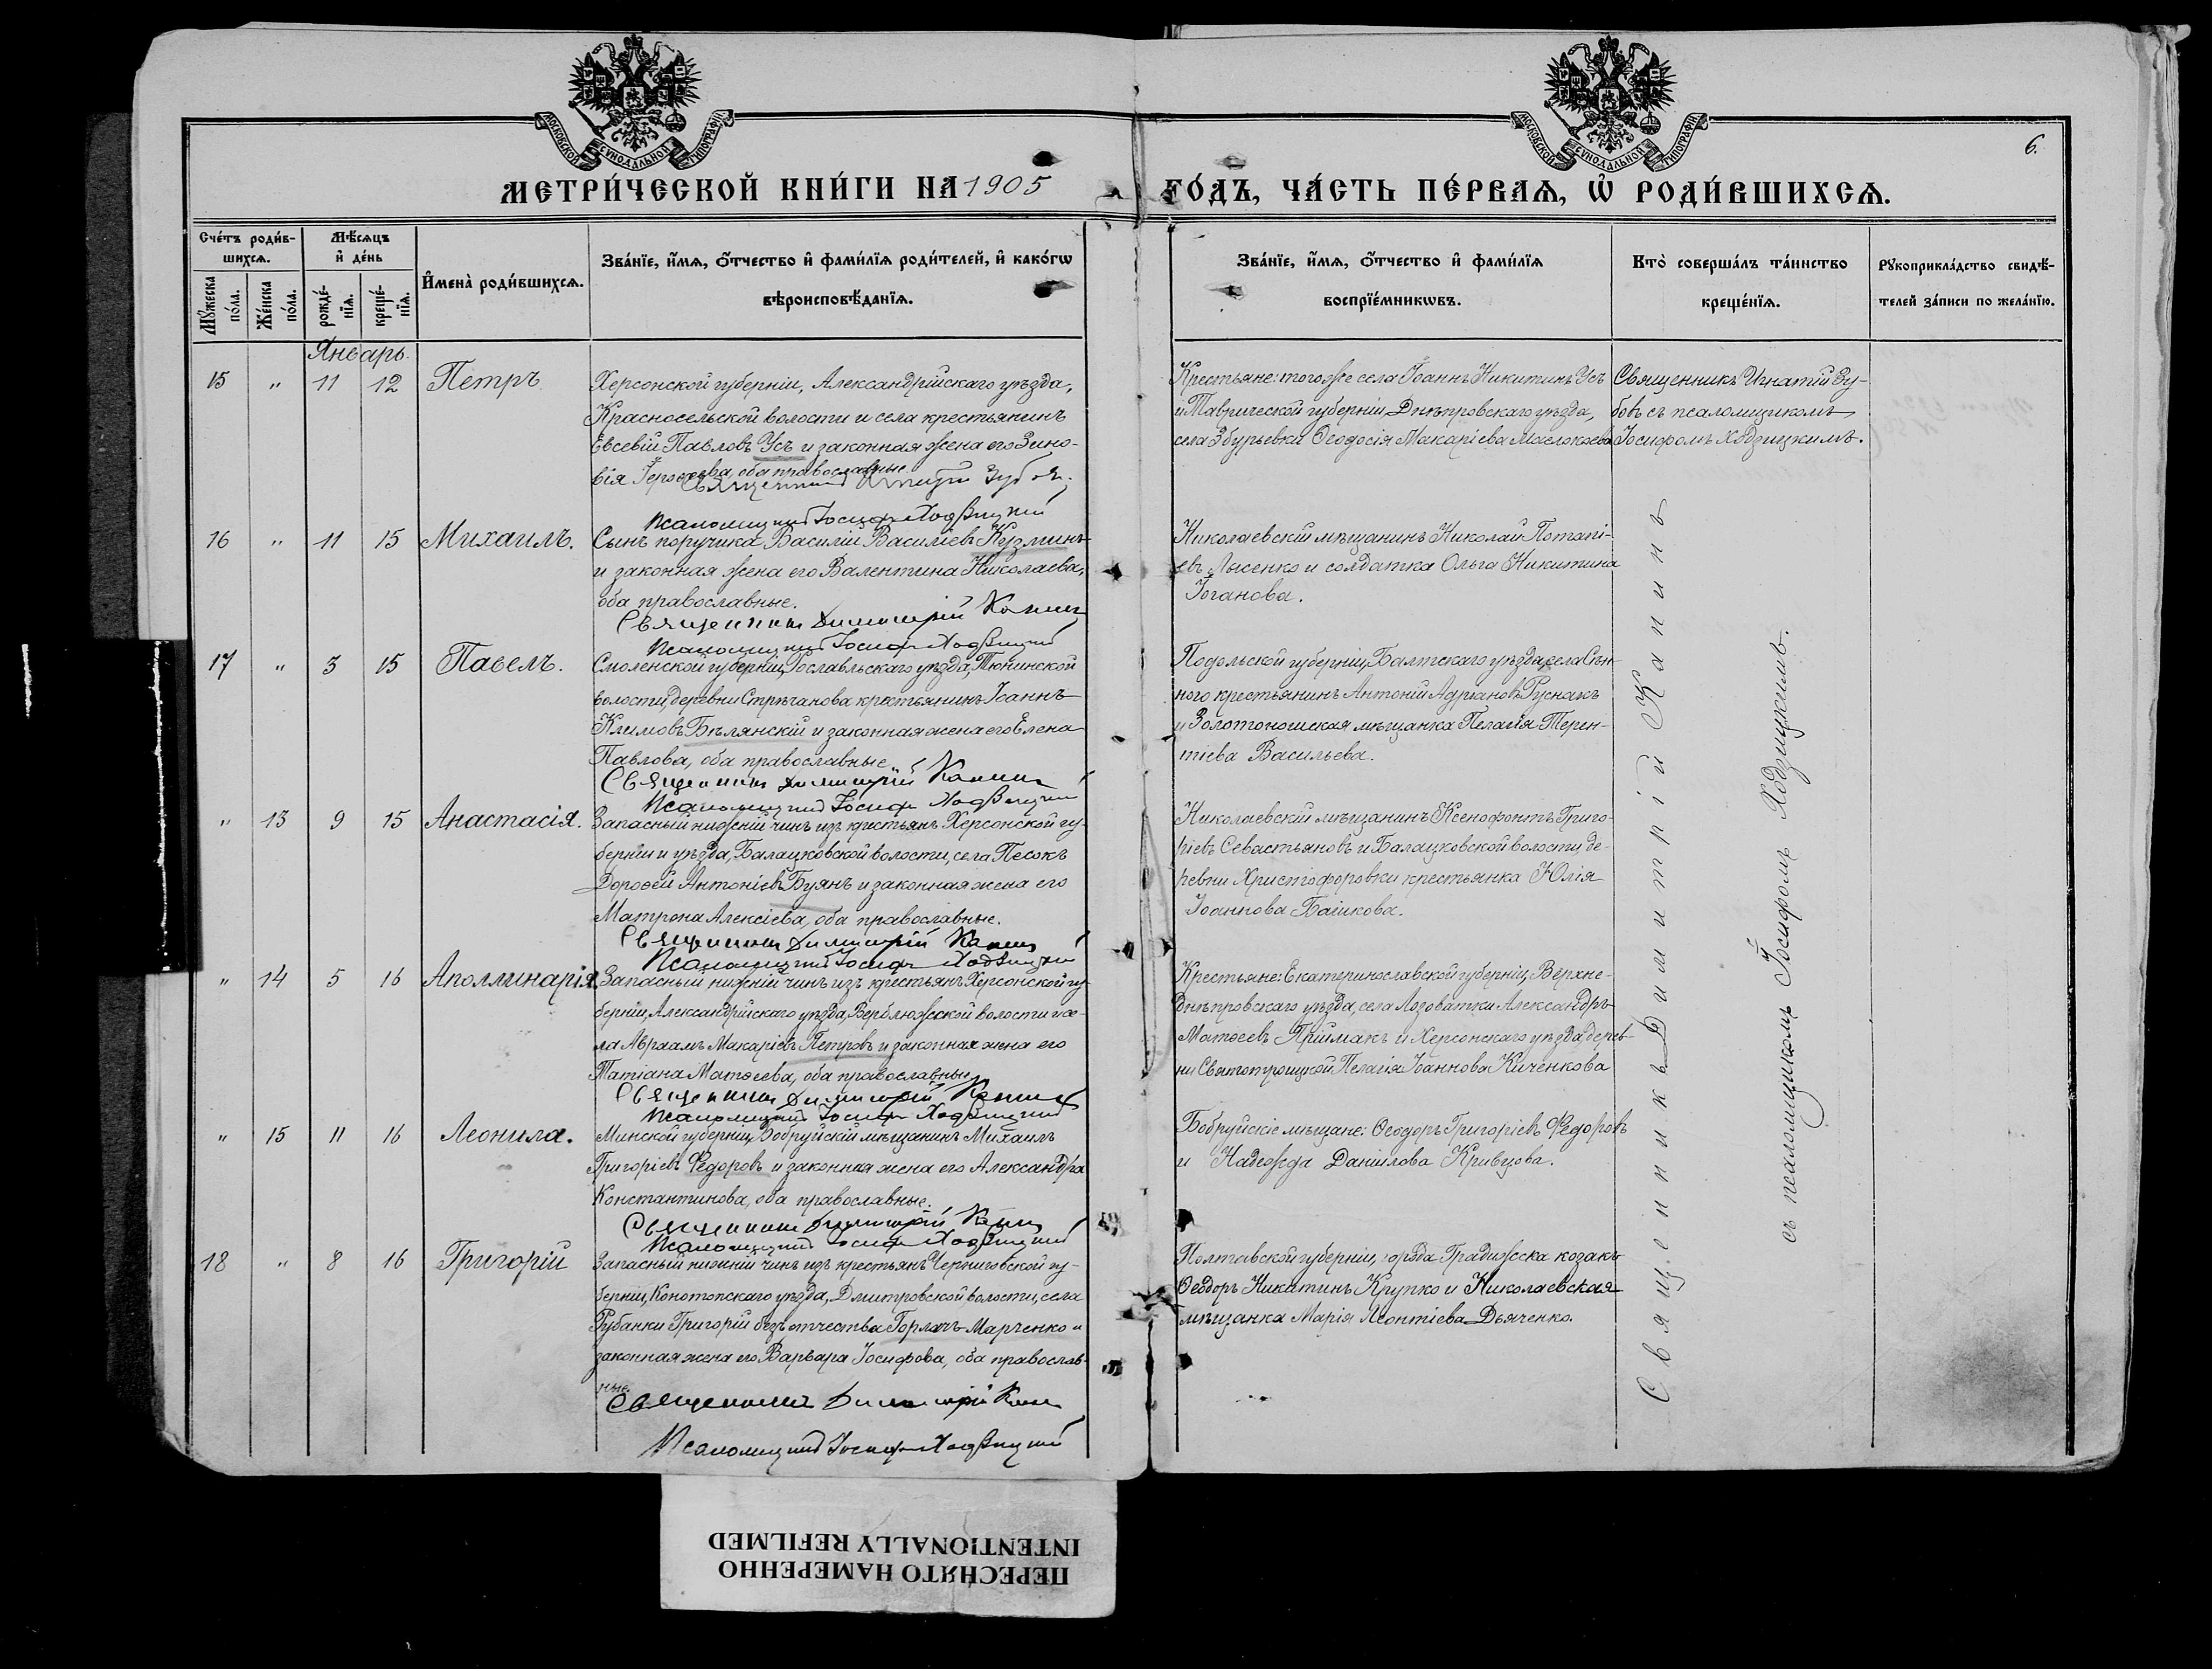 МОСКОВСКОЙ СѴНОДАЛЬНОЙ ТИПОГРАФІИ
МОСКОВСКОЙ СѴНОДАЛЬНОЙ ТИПОГРАФІИ
6.
МЕТРИ́ЧЕСКОЙ КНИ́ГИ НА 1905 ГО́ДЪ, ЧА́СТЬ ПЕ́РВАѦ, Ѡ҆ РОДИ́ВШИХСѦ.
Сче́тъ роди́в-
шихсѧ.
Мꙋ́жеска
по́ла.
Же́нска
по́ла.
Мѣ́сѧцъ
и҆ де́нь
рожде́-
нїѧ.
креще́-
нїѧ.
И҆мена̀ роди́вшихсѧ.
Зва́нїе, и҆́мѧ, ѻ҆́тчество и҆ фами́лїѧ роди́телей, и҆ како́гѡ
вѣроисповѣ́данїѧ.
Зва́нїе, и҆́мѧ, ѻ҆́тчество и҆ фами́лїѧ
воспрїе́мникѡвъ.
Кто̀ соверша́лъ та́инство
креще́нїѧ.
Рꙋкоприкла́дство свидѣ́-
телей за́писи по жела́нїю.
Январь.
15 " 11 12 Петръ
Херсонской губерніи, Александрійскаго уѣзда,
Красносельской волости и села крестьянинъ
Евсевій Павловъ Усъ и законная жена его Зино-
вія Герасіева, оба православные
Священникъ Игнатій Зубовъ
Псаломщикъ Іосифъ Ходзицкій
Крестьяне: того же села Іоаннъ Никитинъ Усъ
и Таврической губерніи, Днѣпровскаго уѣзда,
села Збурьевки Ѳеодосія Макаріева Маслокаева
Священникъ Игнатій Зу-
бовъ съ псаломщикомъ
Іосифомъ Ходзицкимъ.
16 " 11 15 Михаилъ.
Сынъ поручика Василій Василіевъ Кузминъ
и законная жена его Валентина Николаева,
оба православные.
Священникъ Димитрій Канинъ
Псаломщикъ Іосифъ Ходзицкій
Николаевскій мѣщанинъ Николай Потапі-
евъ Лысенко и солдатка Ольга Никитина
Іоганова.
17 " 3 15 Павелъ.
Смоленской губерніи, Рославльскаго уѣзда, Тюнинской
волости, деревни Стрѣчанова крестьянинъ Іоаннъ
Климовъ Бѣлянскій и законная жена его Елена
Павлова, оба православные
Священникъ Димитрій Канинъ
Псаломщикъ Іосифъ Ходзицкій
Подольской губерніи, Балтскаго уѣзда, села Сѣн-
ного крестьянинъ Антоній Адріановъ Руснакъ
и Золотоношская мѣщанка Пелагія Терен-
тіева Васильева.
" 13 9 15 Анастасія.
Запасный нижній чинъ изъ крестьянъ Херсонской гу-
берніи и уѣзда, Балацковской волости, села Песокъ
Дороѳей Антоніевъ Буянъ и законная жена его
Матрона Алексіева, оба православные.
Священникъ Димитрій Канинъ
Псаломщикъ Іосифъ Ходзицкій
Николаевскій мѣщанинъ Ксенофонтъ Григо-
ріевъ Севастьяновъ и Балацковской волости, де-
ревни Христофоровки крестьянка Юлія
Іоаннова Башкова.
" 14 5 16 Аполлинарія.
Запасный нижній чинъ изъ крестьянъ Херсонской гу-
берніи, Александрійскаго уѣзда, Верблюжской волости и се-
ла Авраамъ Макаріевъ Петровъ и законная жена его
Татіана Матѳеева, оба православные
Священникъ Димитрій Канинъ
Псаломщикъ Іосифъ Ходзицкій
Крестьяне: Екатеринославской губерніи, Верхне-
днѣпровскаго уѣзда, села Лозоватки Александръ
Матѳеевъ Пріймакъ и Херсонскаго уѣзда, дерев-
ни Святотроицкой Пелагія Іоаннова Киченкова
" 15 11 16 Леонила.
Минской губерніи, Бобруйскій мѣщанинъ Михаилъ
Григоріевъ Федоровъ и законная жена его Александра
Константинова, оба православные.
Священникъ Димитрій Канинъ
Псаломщикъ Іосифъ Ходзицкій
Бобруйскіе мѣщане: Ѳеодоръ Григоріевъ Федоровъ
и Надежда Даніилова Кривцова.
18 " 8 16 Григорій
Запасный нижній чинъ изъ крестьянъ Черниговской гу-
берніи, Конотопскаго уѣзда, Дмитровской волости, села
Рубанки Григорій безъ отчества Горлачъ-Марченко и
законная жена его Варвара Іосифова, оба православ-
ные.
Священникъ Димитрій Канинъ
Псаломщикъ Іосифъ Ходзицкій
Полтавской губерніи, города Градижска козакъ
Ѳеодоръ Никитинъ Крупко и Николаевская
мѣщанка Марія Леонтіева Дьяченко.
Священникъ Димитрій Канинъ
съ псаломщикомъ Іосифомъ Ходзицкимъ.
ПЕРЕСНЯТО НАМЕРЕННО
INTENTIONALLY REFILMED